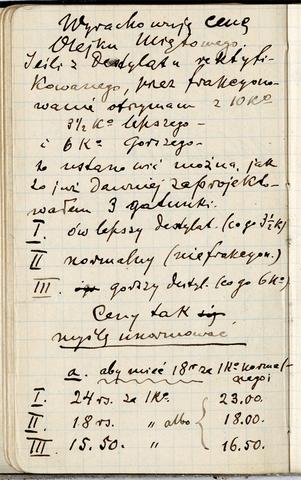 Wyrachowuję cenę
Olejku Miętowego.
Jeśli z Destylatu rektyfi-
kowanego, przez frakcyono-
wanie otrzymam z 10 Ko
3½ Ko lepszego -
i 6 Ko gorszego -
to ustanowić można, jak
to już dawniej zaprojekto-
wałem 3 gatunki.
I. ów lepszy destylat. (co go 3½ K)
II normalny (niefrakcyon.)
III. gorszy destyl. (co go 6 Ko)
Ceny tak
myślę unormować
a. aby mieć 18 r za 1 Ko normal-
nego i
I. 24 rs. za 1 Ko. 23.00.
II. 18 rs. " albo 18.00.
III. 15.50. " 16.50.